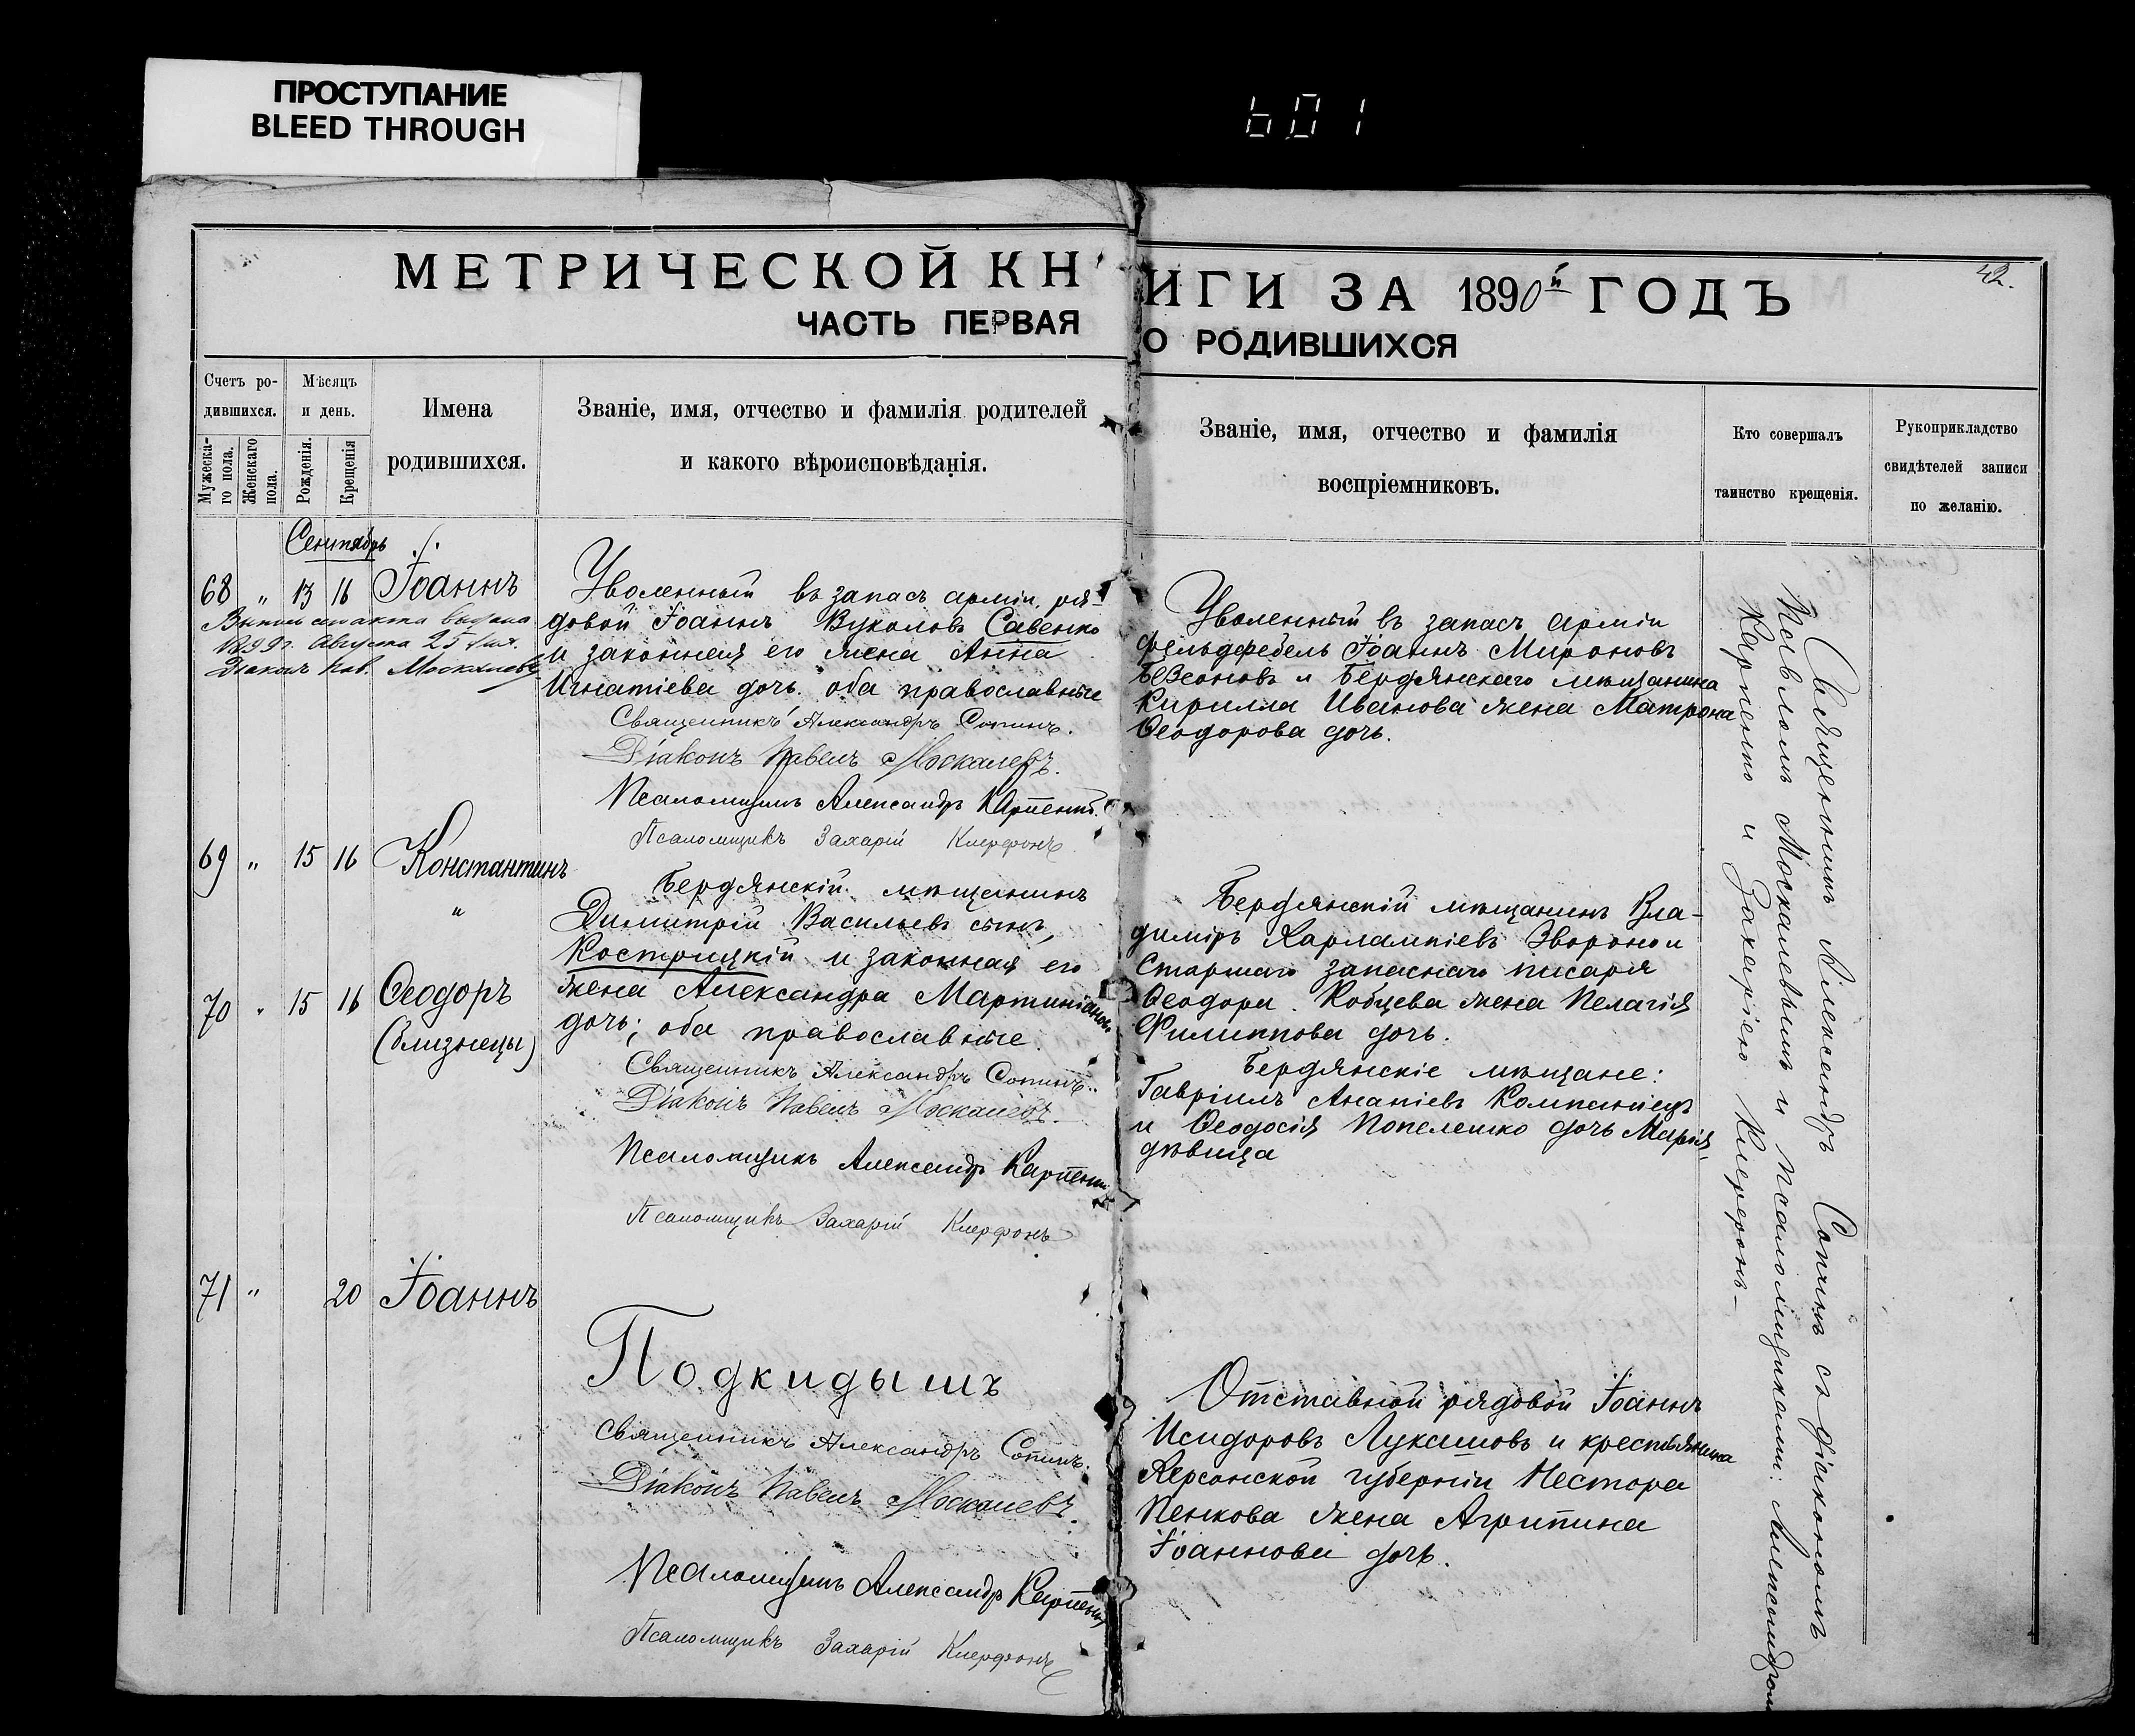 ПРОСТУПАНИЕ
BLEED THROUGH
601
МЕТРИЧЕСКОЙ КНИГИ ЗА 1890й ГОДЪ
42.
ЧАСТЬ ПЕРВАЯ О РОДИВШИХСЯ
Счетъ ро-
дившихся.
Мужеска-
го пола.
Женскаго
пола.
Мѣсяцъ
и день.
Рожденія.
Крещенія
Имена
родившихся.
Званіе, имя, отчество и фамилія родителей
и какого вѣроисповѣданія.
Званіе, имя, отчество и фамилія
воспріемниковъ.
Кто совершалъ
таинство крещенія.
Рукоприкладство
свидѣтелей записи
по желанію.
Сентябрь
68 " 13 16 Іоаннъ
выдана
1899 г. Августа 25 дня.
Діаконъ Пав. Москалевъ
Уволенный въ запасъ арміи, ря-
довой Іоаннъ Вуколовъ Савенко
и законная его жена Анна
Игнатіева дочь. оба православные
Священникъ Александръ Сопинъ.
Діаконъ Павелъ Москалевъ.
Псаломщикъ Александръ Карпенко.
Псаломщикъ Захарій Клерфонъ
Уволенный въ запасъ арміи
фельдфебель Іоаннъ Мироновъ
и Бердянскаго мѣщанина
Кирилла Иванова жена Матрона
Ѳеодорова дочь.
69 " 15 16 Константинъ
"
70 " 15 16 Ѳеодоръ
(близнецы)
Бердянскій мѣщанинъ
Димитрій Васильевъ сынъ,
Кострицкій и законная его
жена Александра Мартиніанов
дочь; оба православные.
Священникъ Александръ Сопинъ.
Діаконъ Павелъ Москалевъ.
Псаломщикъ Александръ Карпенко
Псаломщикъ Захарій Клерфонъ
Бердянскій мѣщанинъ Вла-
диміръ Харлампіевъ Звороно и
Старшаго запаснаго писаря
Ѳеодора Кобцева жена Пелагія
Филиппова дочь.
Бердянскіе мѣщане:
Гавріилъ Ананіевъ Компаніецъ
и Ѳеодосія Попелешко дочь Марія
дѣвица
71 " 20 Іоаннъ
Подкидышъ
Священникъ Александръ Сопинъ.
Діаконъ Павелъ Москалевъ.
Псаломщикъ Александръ Карпенко
Псаломщикъ Захарій Клерфонъ
Отставной рядовой Іоаннъ
Исидоровъ Лукашовъ и крестьянина
Херсонской губерніи Нестора
Пенкова жена Агрипина
Іоаннова дочь.
Священникъ Александръ Сопинъ съ діакономъ
Павломъ Москалевымъ и псаломщиками: Александромъ
Карпенко и Захаріею Клерфонъ –